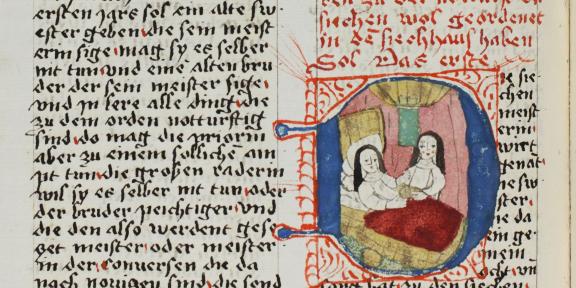 ersten jars sol ein alte sw
ester geben die sein meist
erin sige mag sy es selber
nit tun vnd eine alten bru
der der sein meister sige
vnd in lere alle ding die
zu dem orden notturftig
sind do mag die priorin
aber zu einem sollichē am
pt tun die groſsen
wil sy es selber nit tun oder
der bruder peichtiger vnd
die den also werdent gese
get meister oder meister
in der Conversen die da
nach novizen sind die send
siechen wol geordenet
in dē siechhaus haben
Sol Das erste
ie sie
chen
meist
erin
wirt
genāt
ie sw
ie da
in ge
mein
ocht vn